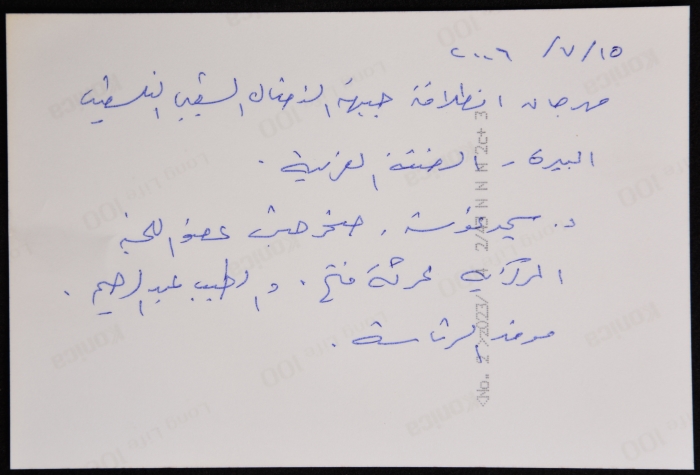 ٢٠٠٦ /٧/١٥
مهرجان انطلاقة جبهة النضال الشعبي الفلسطيني
البيرة - الضفة الغربية .
د. سمير غوشة , صخر حبش عضو اللجنة
المركزية لحركة فتح . و الطيب عبد الرحيم .
موفد الرئاسة .
<No. 2 >2023/ 4 2/43 N N N 2c+ 3
Konica
LONG LIFE 100